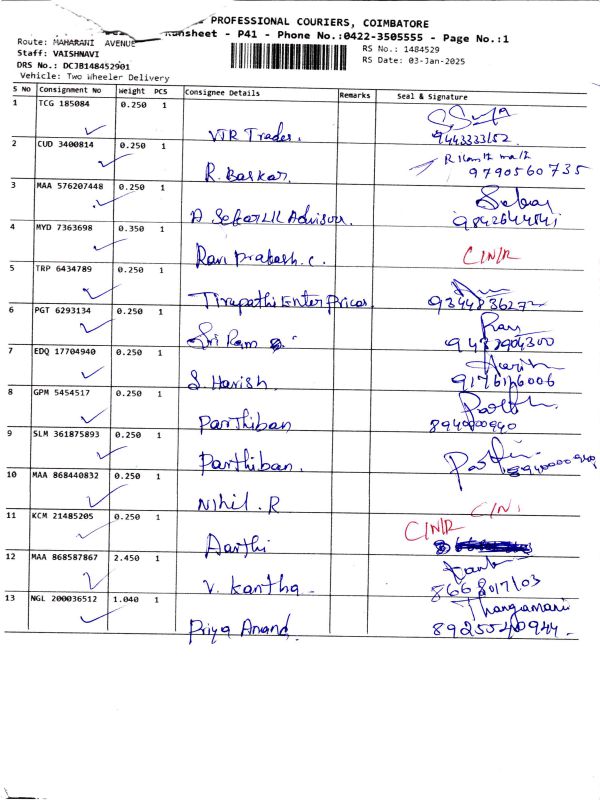 PROFESSIONAL COURIERS, COIMBATORE
Runsheet - P41 - Phone No.:0422-3505555 - Page No.:1
Route: MAHARANI AVENUE
Staff: VAISHNAVI
DRS No.: DCJB148452901
Vehicle: Two Wheeler Delivery
RS No.: 1484529
RS Date: 03-Jan-2025
S No Consignment No Weight PCS Consignee Details Remarks Seal & Signature
1 TCG 185084 0.250 1
VTR Traders. 9443333152
2 CUD 3400814 0.250 1
R. Baskar. 9790560735
3 MAA 576207448 0.250 1
A Sekar LIC Advisor. 9842644541
4 MYD 7363698 0.350 1
Ravi Prakash. C. C/N/R
5 TRP 6434789 0.250 1
Tirupathi Enter Prices 9344836272
6 PGT 6293134 0.250 1
Sri Ram Ram
7 EDQ 17704940 0.250 1
S. Harish. Harish
9176166006
8 GPM 5454517 0.250 1
Parthiban 8940000940
9 SLM 361875893 0.250 1
Parthiban. 8940000940
10 MAA 868440832 0.250 1
Nihil. R C/N.
11 KCM 21485205 0.250 1
Aarthi C/N/R
12 MAA 868587867 2.450 1
V. Kantha. 8668017103
13 NGL 200036512 1.040 1
Priya Anand. Thangamani
8925540944